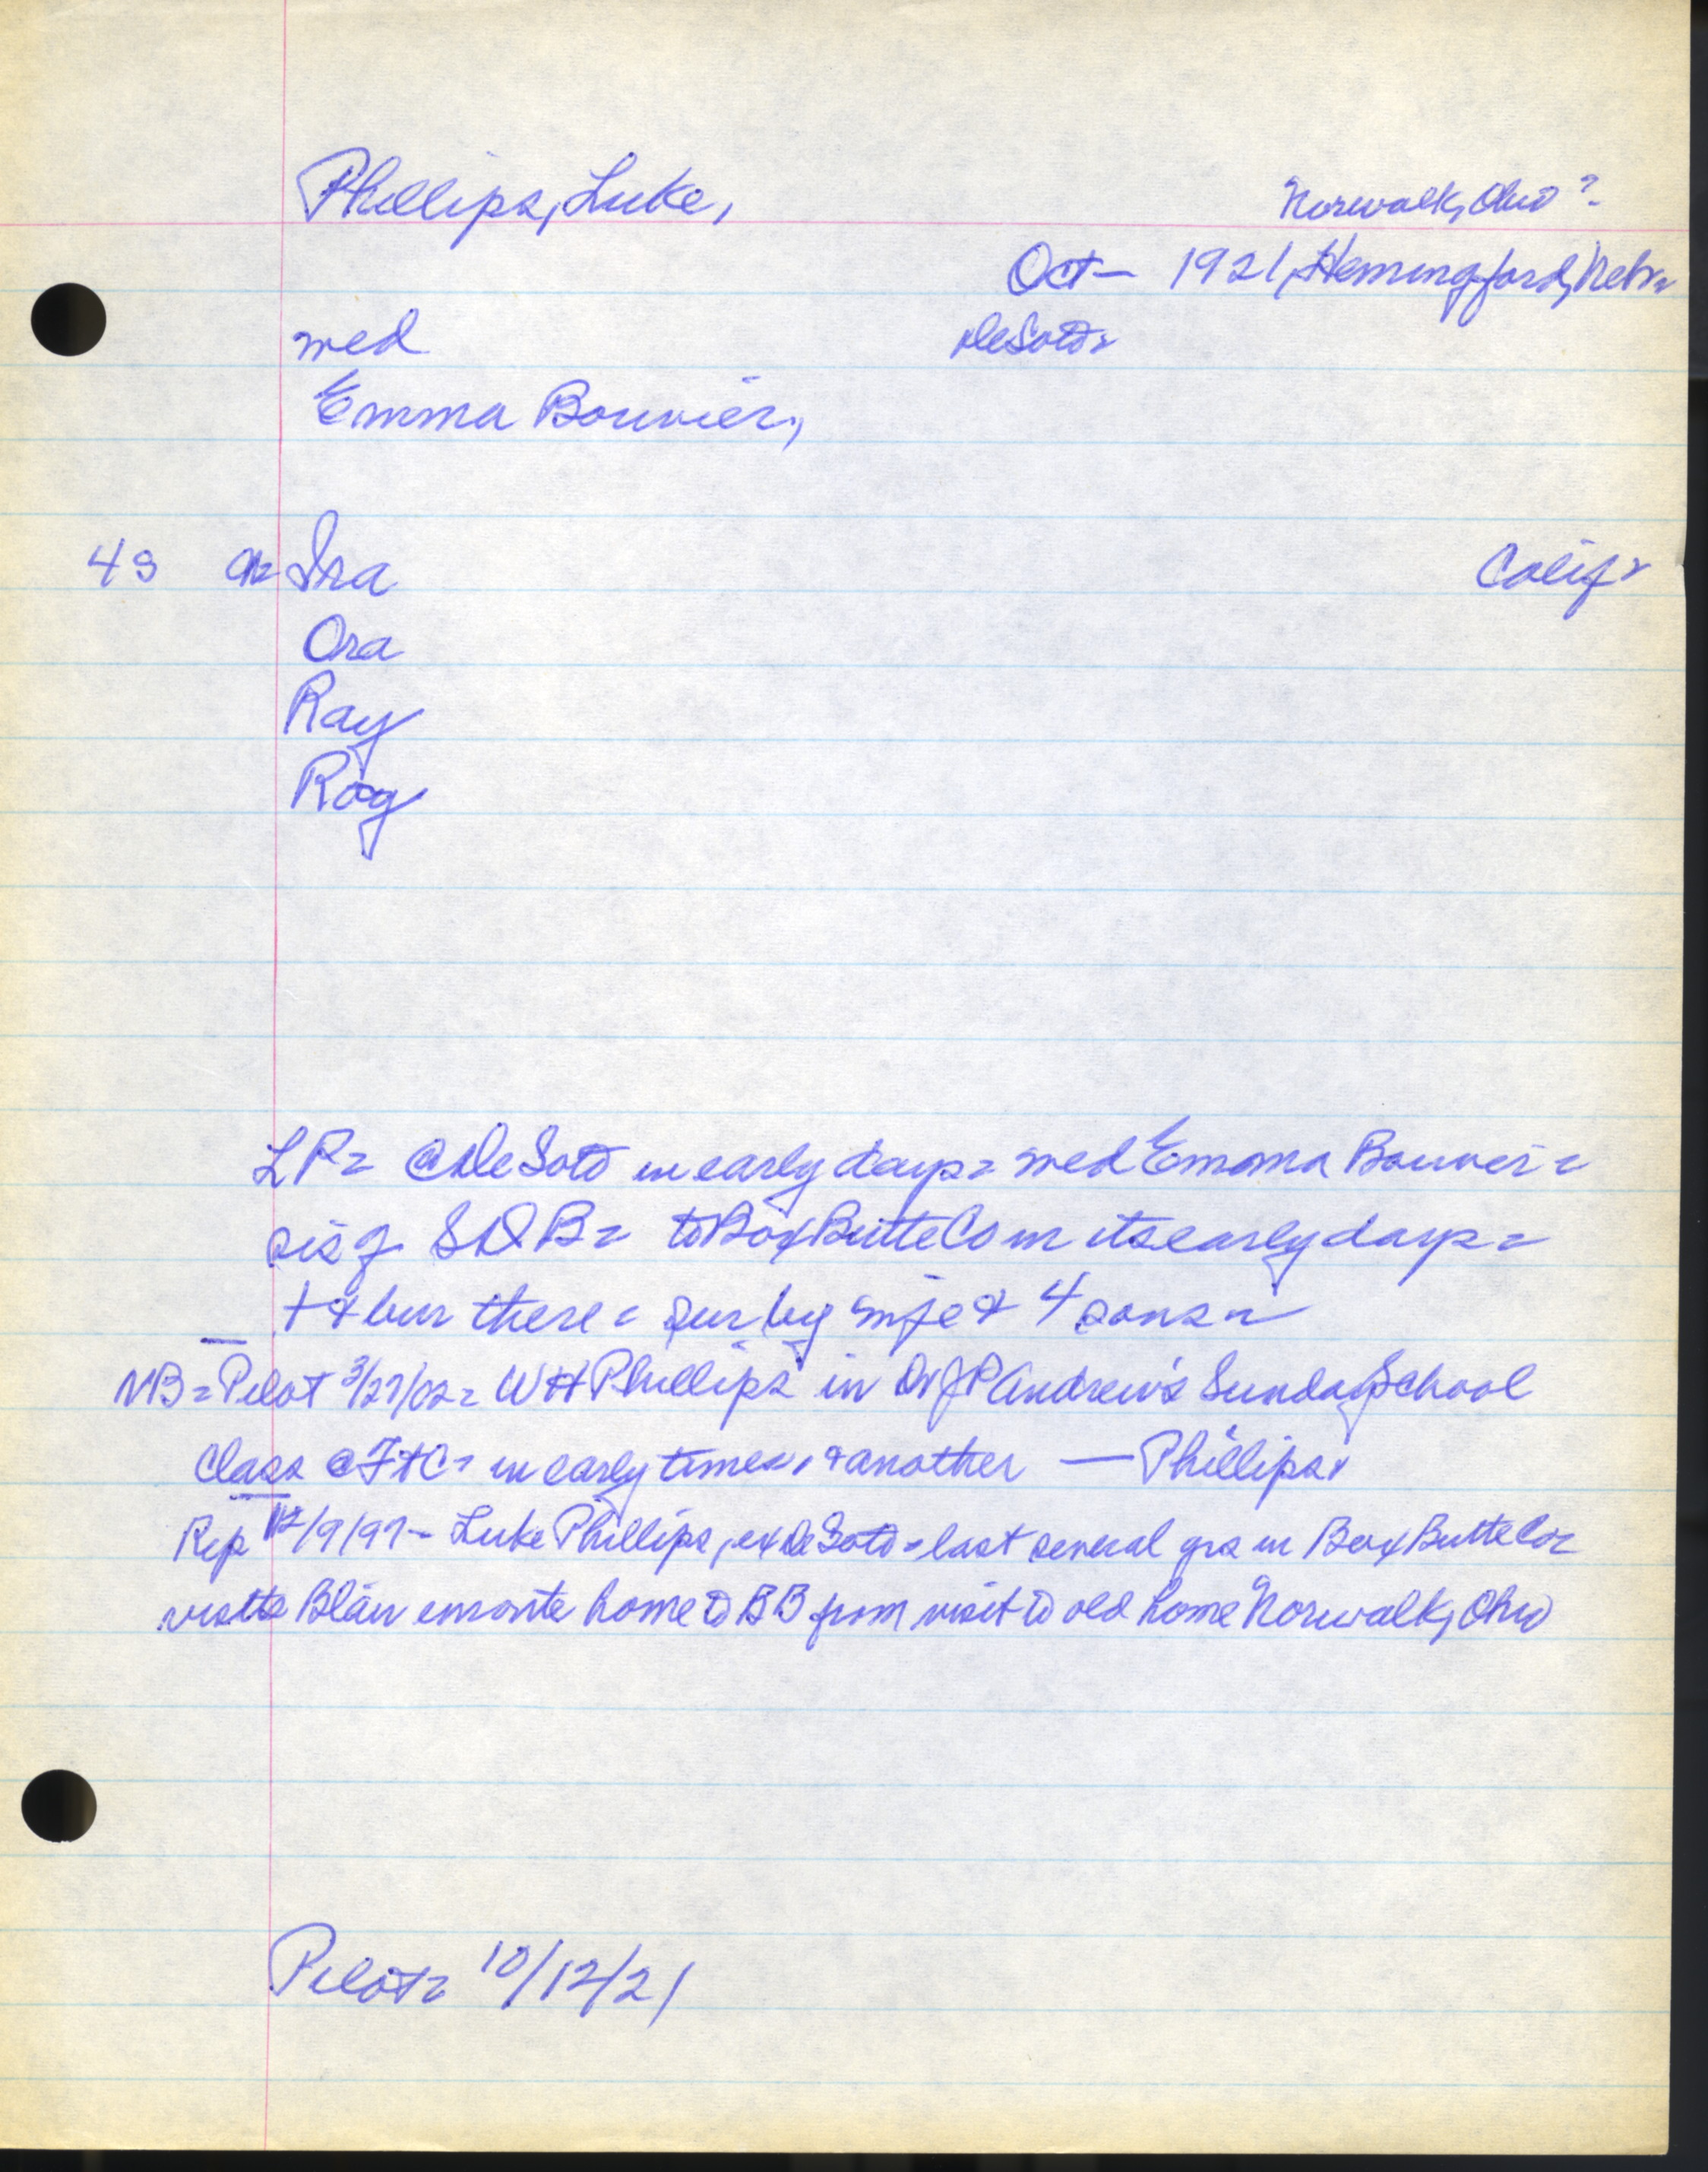 Phillips, Luke, Norwalk, Ohio?
Oct — 1921, Hemingford, Nebr=
med DeSoto=
Emma Bouvier,
4s Ira Calif=
Ora
Ray
Roy
LP= @ DeSoto in early days= med Emma Bouvier=
sis of SDB= to Box Butte Co in its early days=
+ & bur there= sur by wife & 4 sons=
NB= Pilot 3/27/02= WH Phillips in Dr JP Andrew's Sunday School
Class @ FtC= in early times, & another — Phillips,
Rep 12/9/97- Luke Phillips, ex DeSoto= last several yrs in Box Butte Co=
visits Blair enroute home to BB from visit to old home Norwalk, Ohio
Pilot= 10/12/21